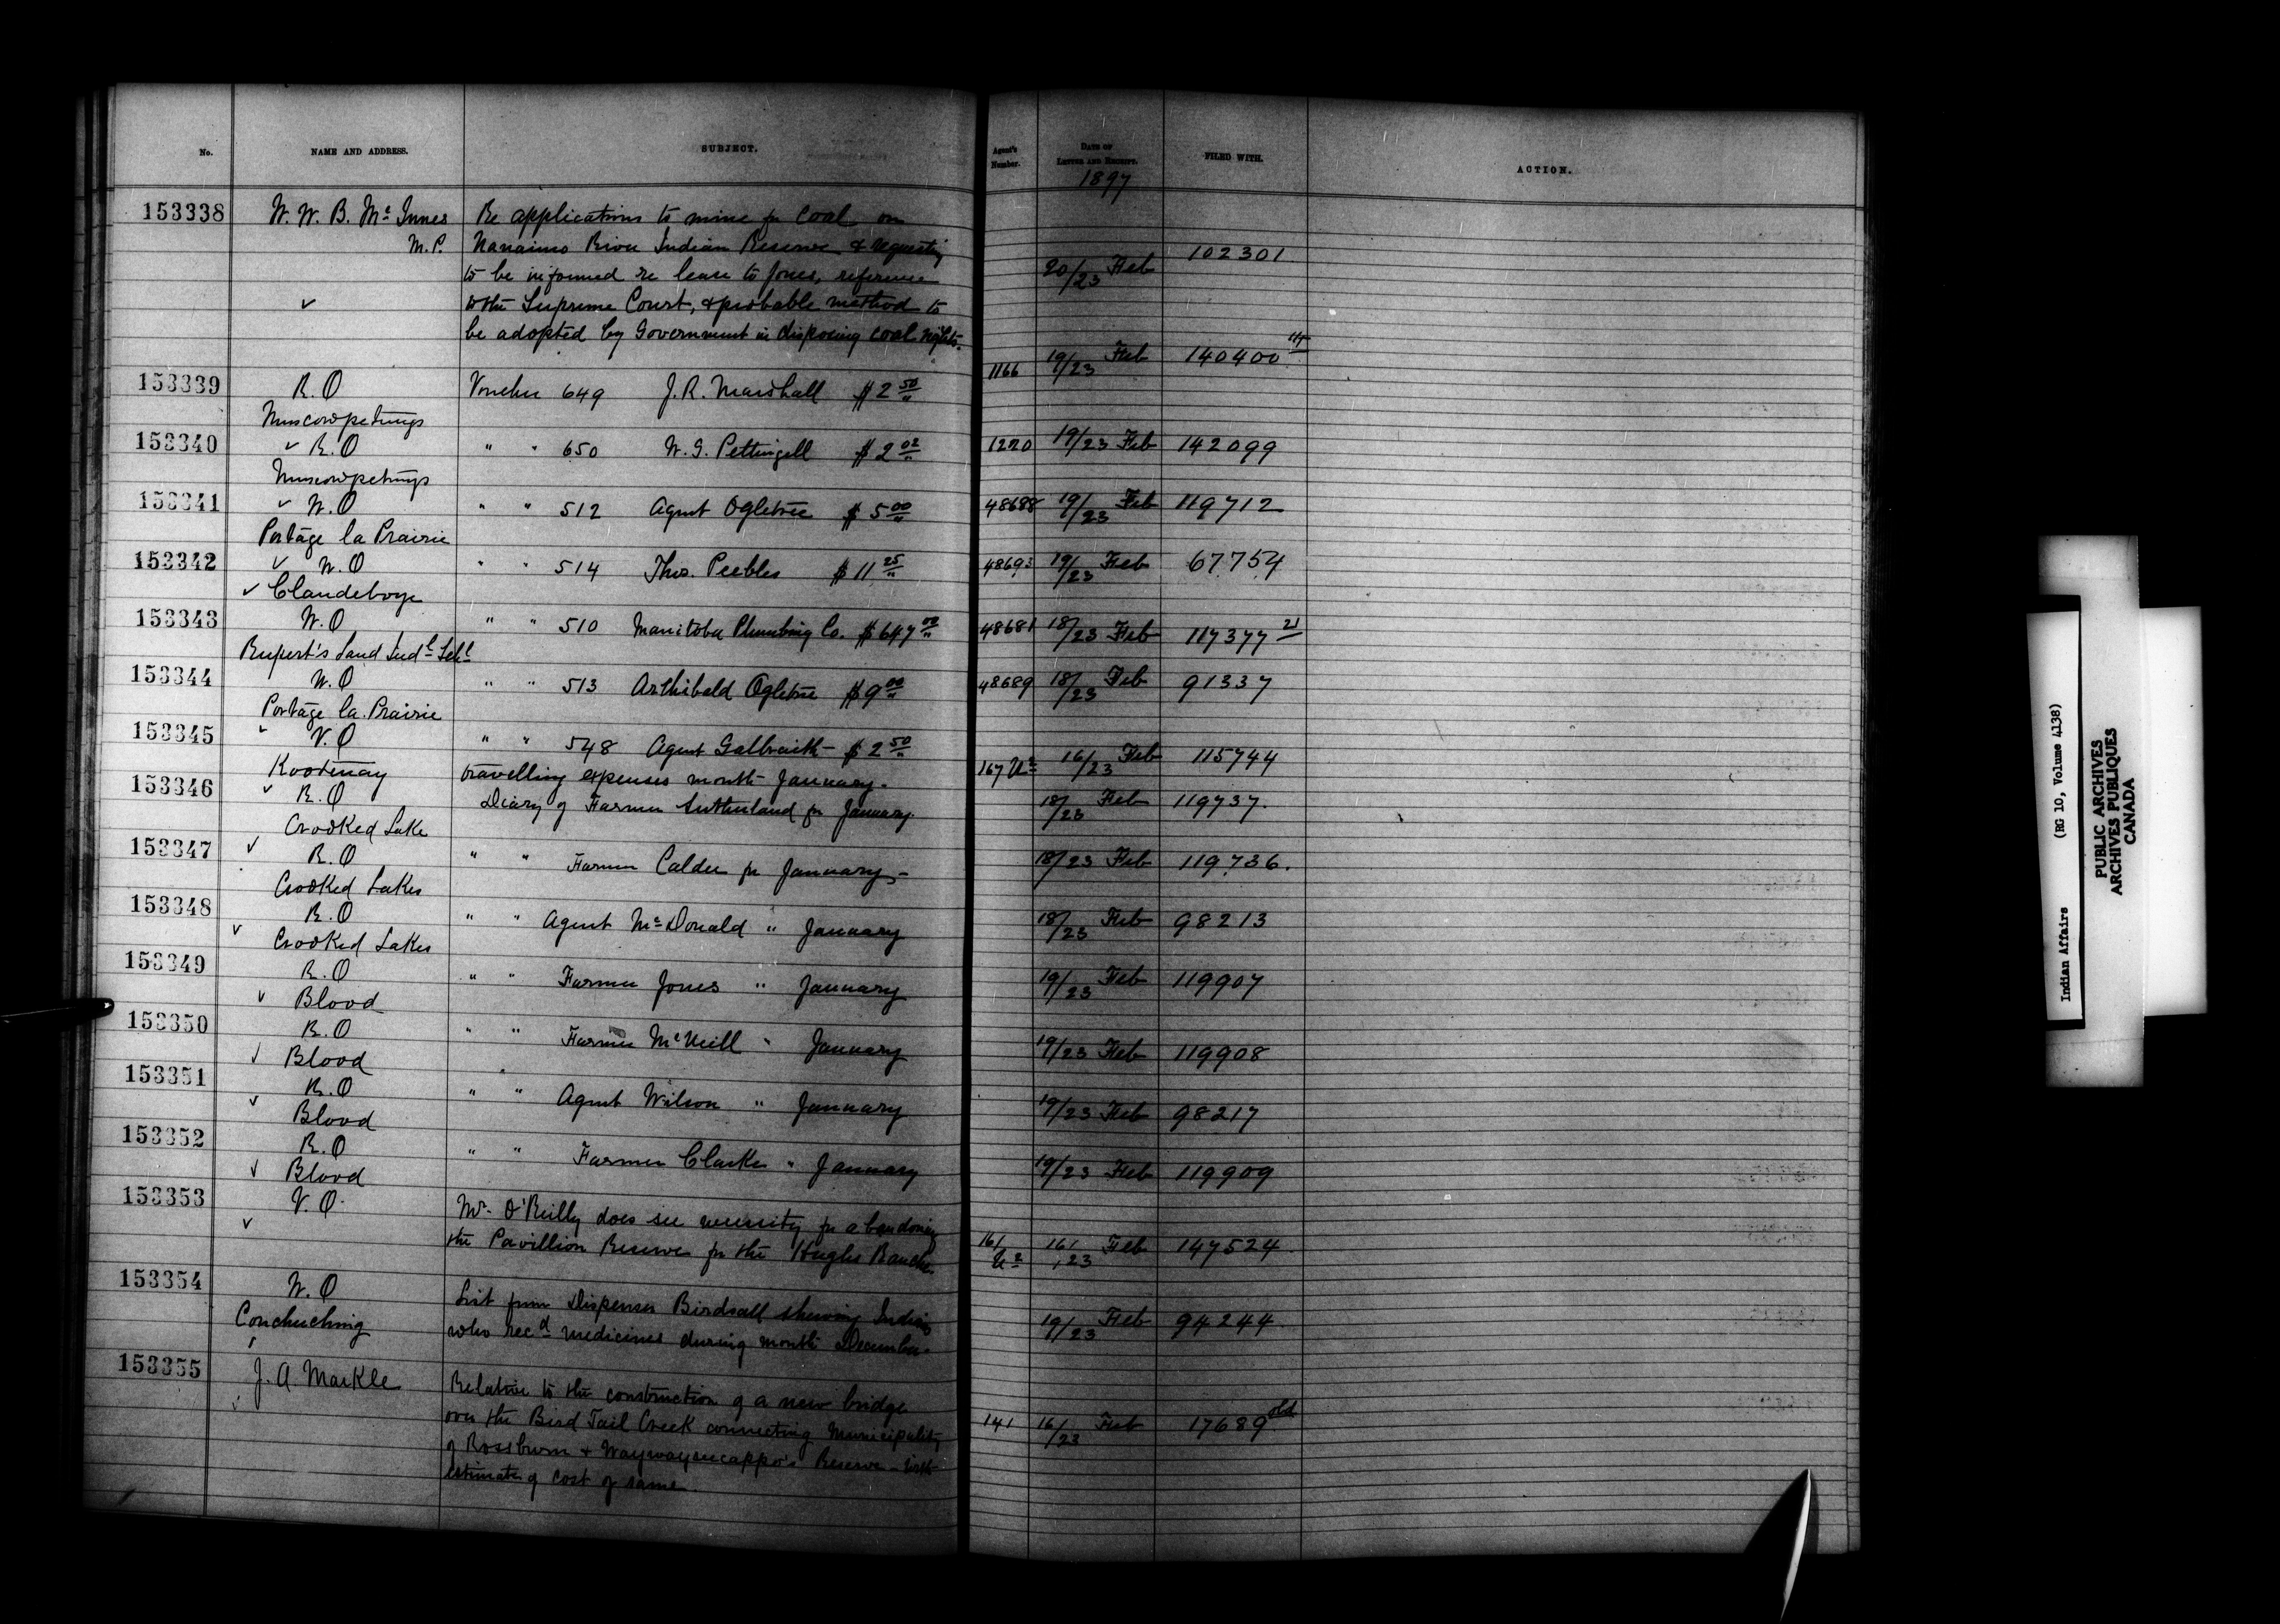 No. NAME AND ADDRESS. SUBJECT. Agent's Number. DATE OF LETTER AND RECEIPT. FILED WITH. ACTION.
1897
153338 W. W. B. Mc Innes Re applications to mine for coal on
M.P. Nanaimo River Indian Reserve & requesting 102301
to be informed re lease to Jones, reference 20/23 Feb
to the Supreme Court, & probable method to
be adopted by Government in disposing coal rights.
153339 R.O Voucher 649 J. R. Marshall $2 50 1166 19/23 Feb 140400
Muscowpetungs
153340 R.O " " 650 W. G. Pettingell $2 02 1220 19/23 Feb 142099
Muscowpetungs
153341 W.O " " 512 Agent Ogletree $5 00 48688 19/23 Feb 119712
Portage la Prairie
153342 W.O " " 514 Thos. Peebles $11 25 48693 19/23 Feb 67754
Clandeboye
153343 W.O " " 510 Manitoba Plumbing Co. $647 00 48681 18/23 Feb 117377 21
Rupert's Land Indl Schl
153344 W.O " " 513 Archibald Ogletree $9 00 48689 18/23 Feb 91337
Portage la Prairie
153345 V.O " " 548 Agent Galbraith - $2 50 16/23 Feb 115744
Kootenay travelling expenses month January. 167
153346 R.O Diary of Farmer Sutherland for January. 18/23 Feb 119737.
Crooked Lake
153347 R.O " " Farmer Calder for January - 18/23 Feb 119736.
Crooked Lakes
153348 R.O " " Agent McDonald " January 18/23 Feb 98213
Crooked Lakes
153349 R.O " " Farmer Jones " January 19/23 Feb 119907
Blood
153350 R.O " " Farmer McNeill " January 19/23 Feb 119908
Blood
153351 R.O " " Agent Wilson " January 19/23 Feb 98217
Blood
153352 R.O " " Farmer Clarke " January 19/23 Feb 119909
Blood
153353 V.O. Mr. O'Reilly does see necessity for abandoning
the Pavillion Reserve for the Hughes Ranche. 161 16/23 Feb 147524
153354 W.O List from Dispenser Birdsall shewing Indians
Couchuching who recd medicines during month December. 19/23 Feb 94244
153355 J. A. Markle Relative to the construction of a new bridge
over the Bird Tail Creek connecting Municipality 141 16/23 Feb 17689 old
of Rossburn & Waywayseecappo's Reserve - with
estimate of cost of same.
Indian Affairs (RG 10, Volume 4138)
PUBLIC ARCHIVES
ARCHIVES PUBLIQUES
CANADA